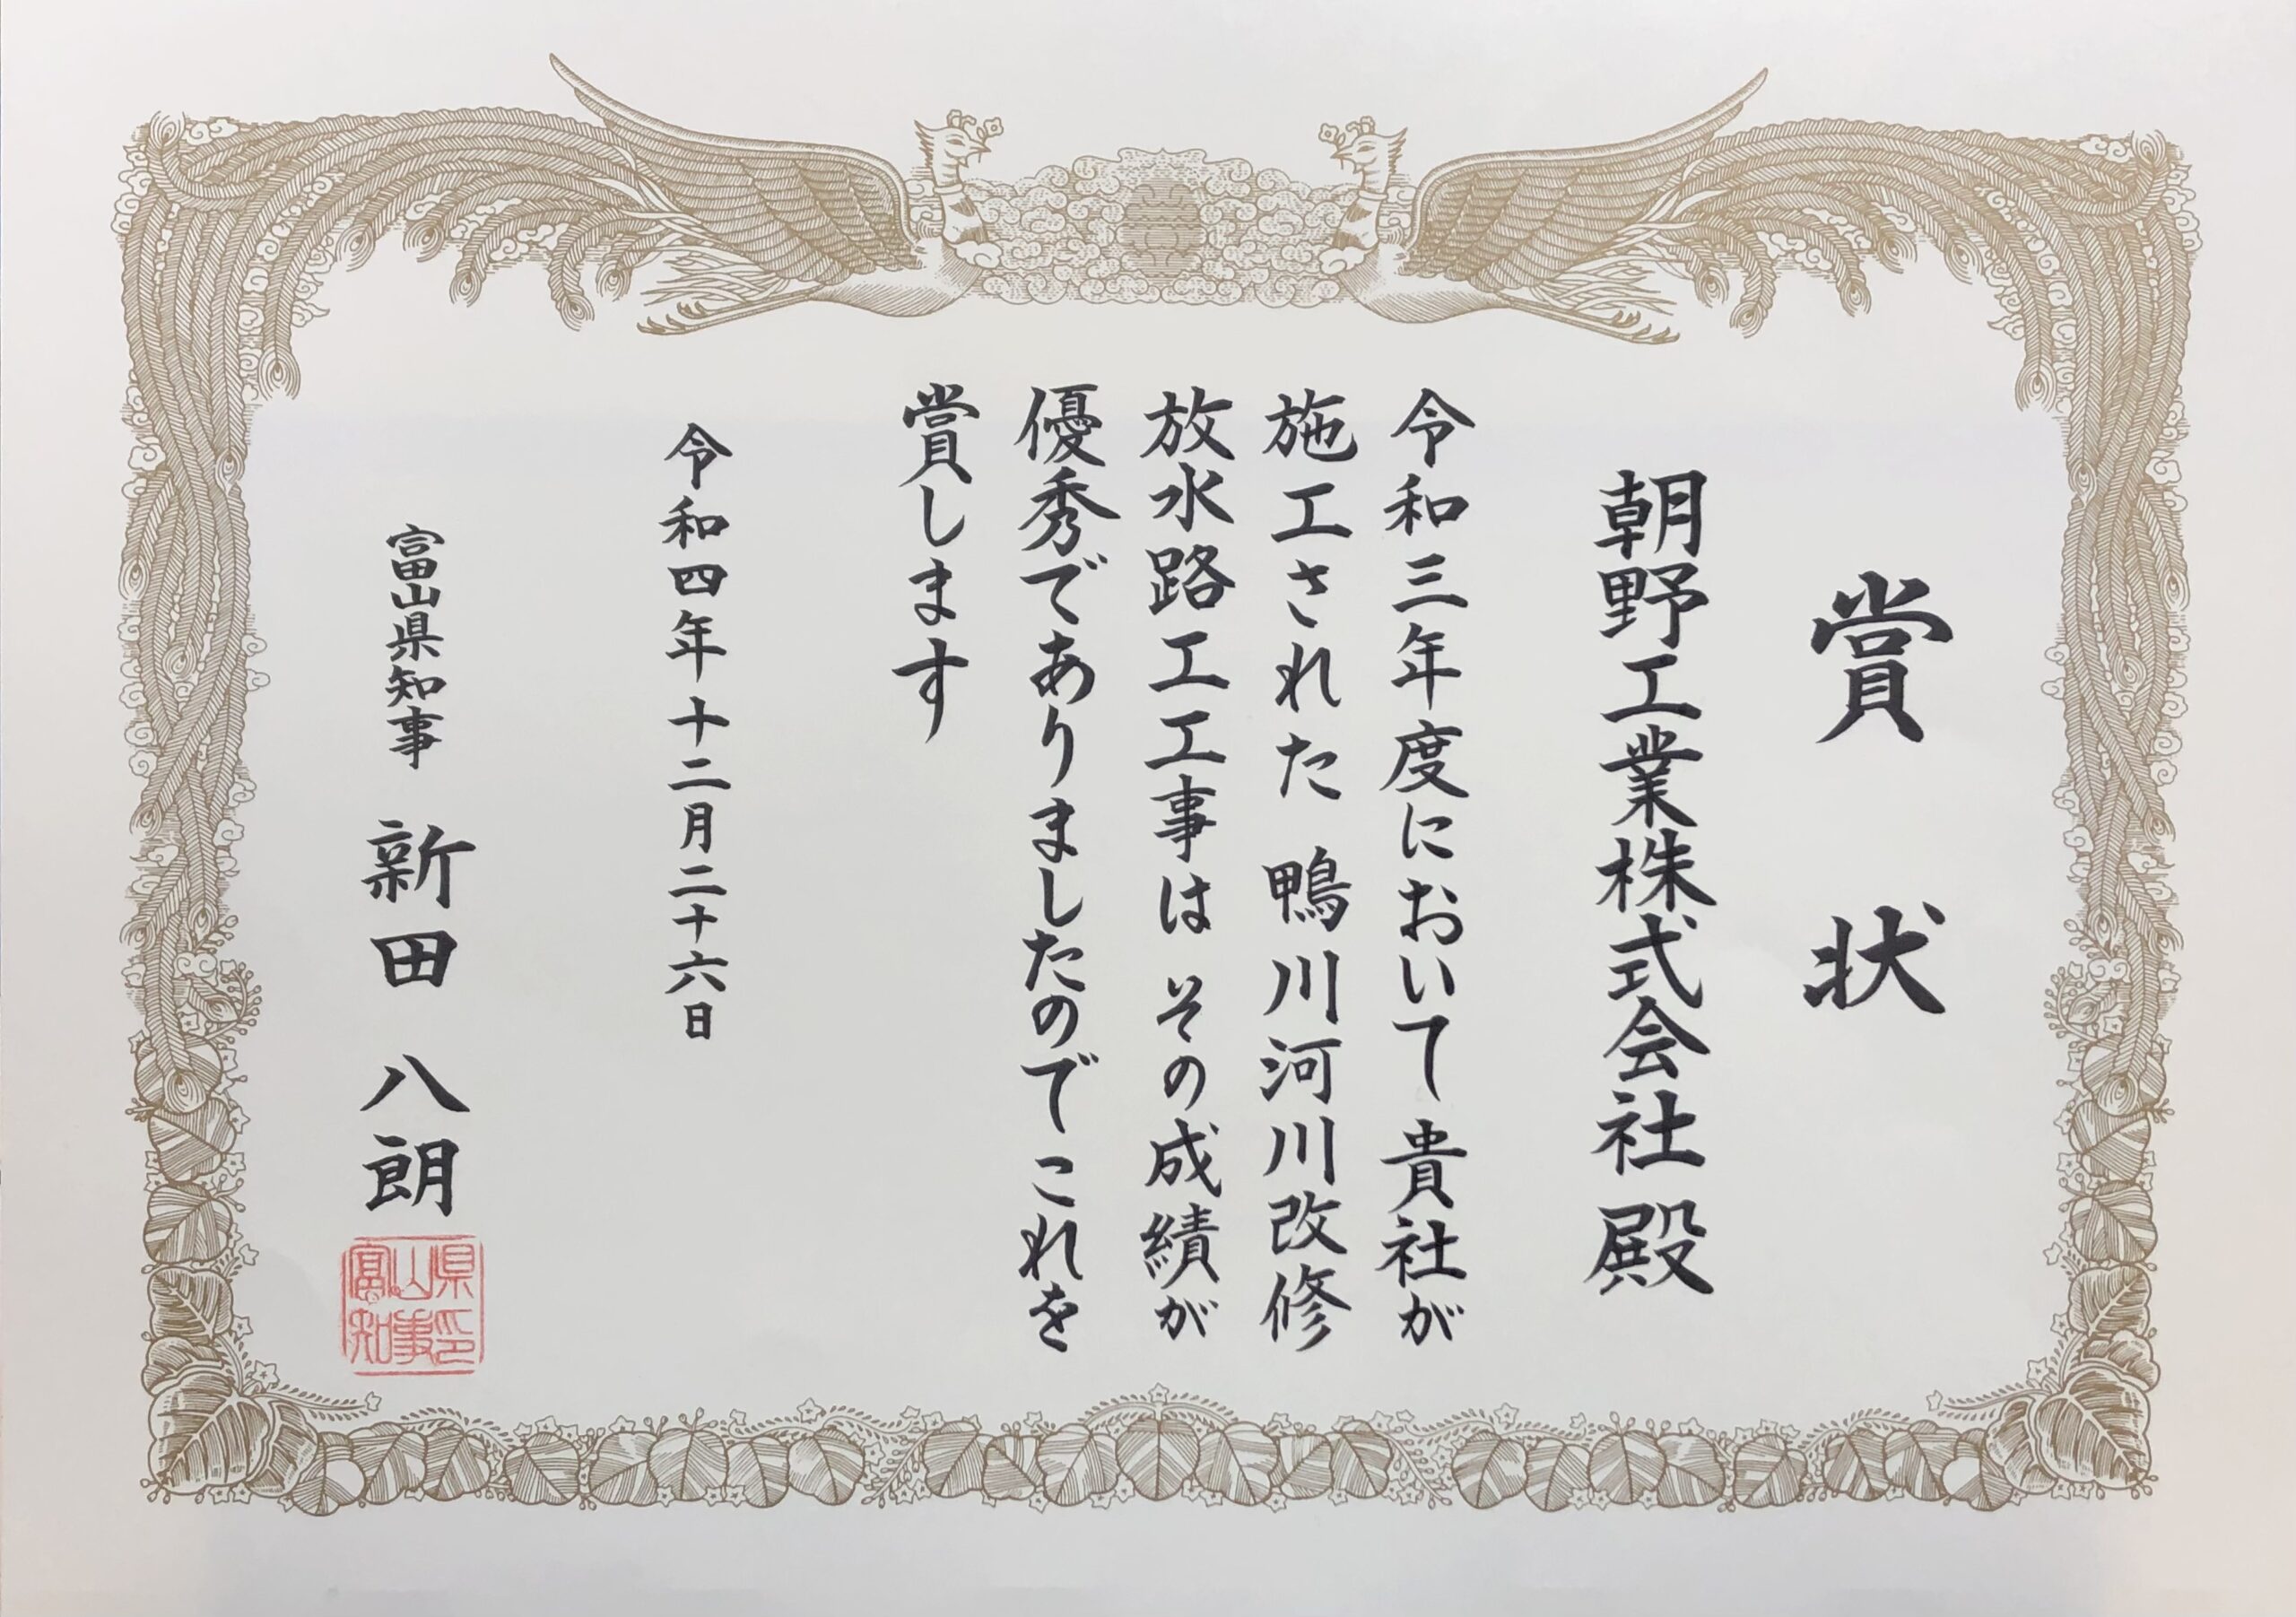 賞状
朝野工業株式会社 殿
令和三年度において 貴社が
施工された 鴨川河川改修
放水路工工事は その成績が
優秀でありましたので これを
賞します
令和四年十二月二十六日
富山県知事 新田八朗
富山県知事印